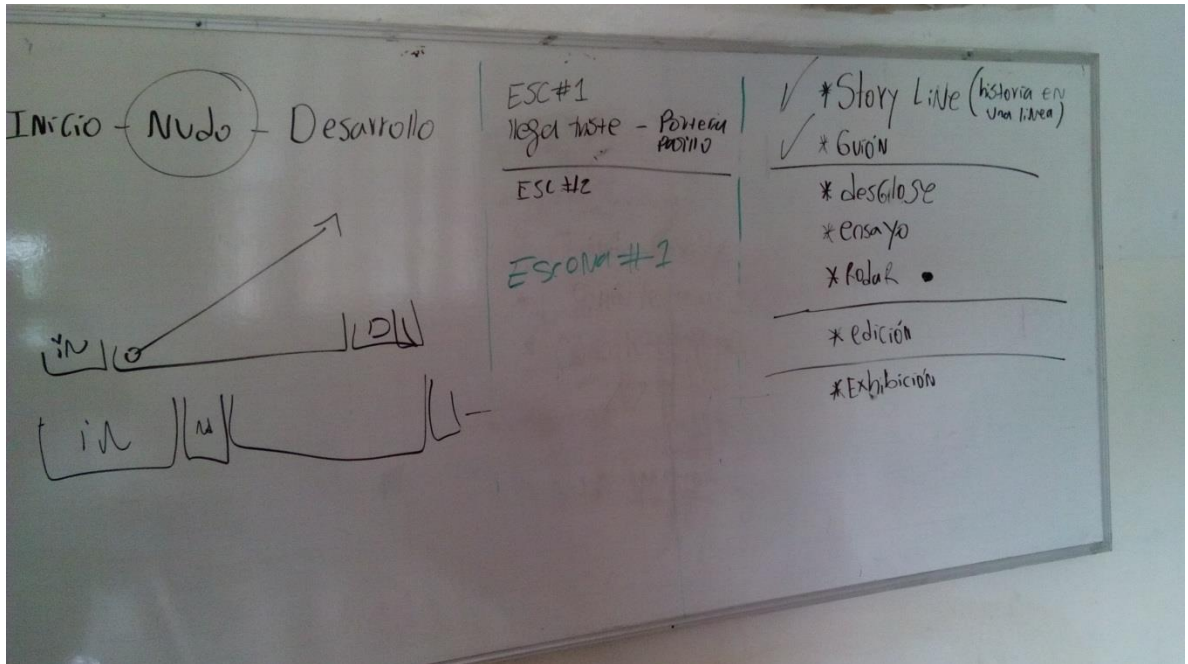 INicio - Nudo - Desarrollo
iN
D
iN
N
ESC#1
llega triste - Portería
Pasillo
ESC#2
EscENa#1
*Story LiNe (historia en
una línea)
*Guión
*desglose
*ensayo
*RodaR
*edición
*Exhibición